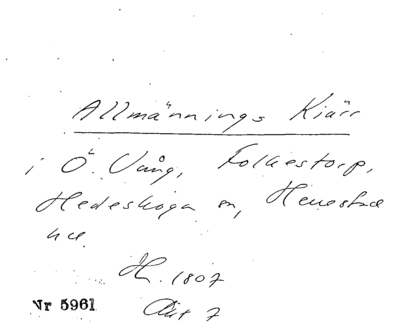 Allmännings Kiärr
i Ö. Vång, Folkestorp,
Hedeskoga sn, Herrestads
hd
1807
7
Nr 5961